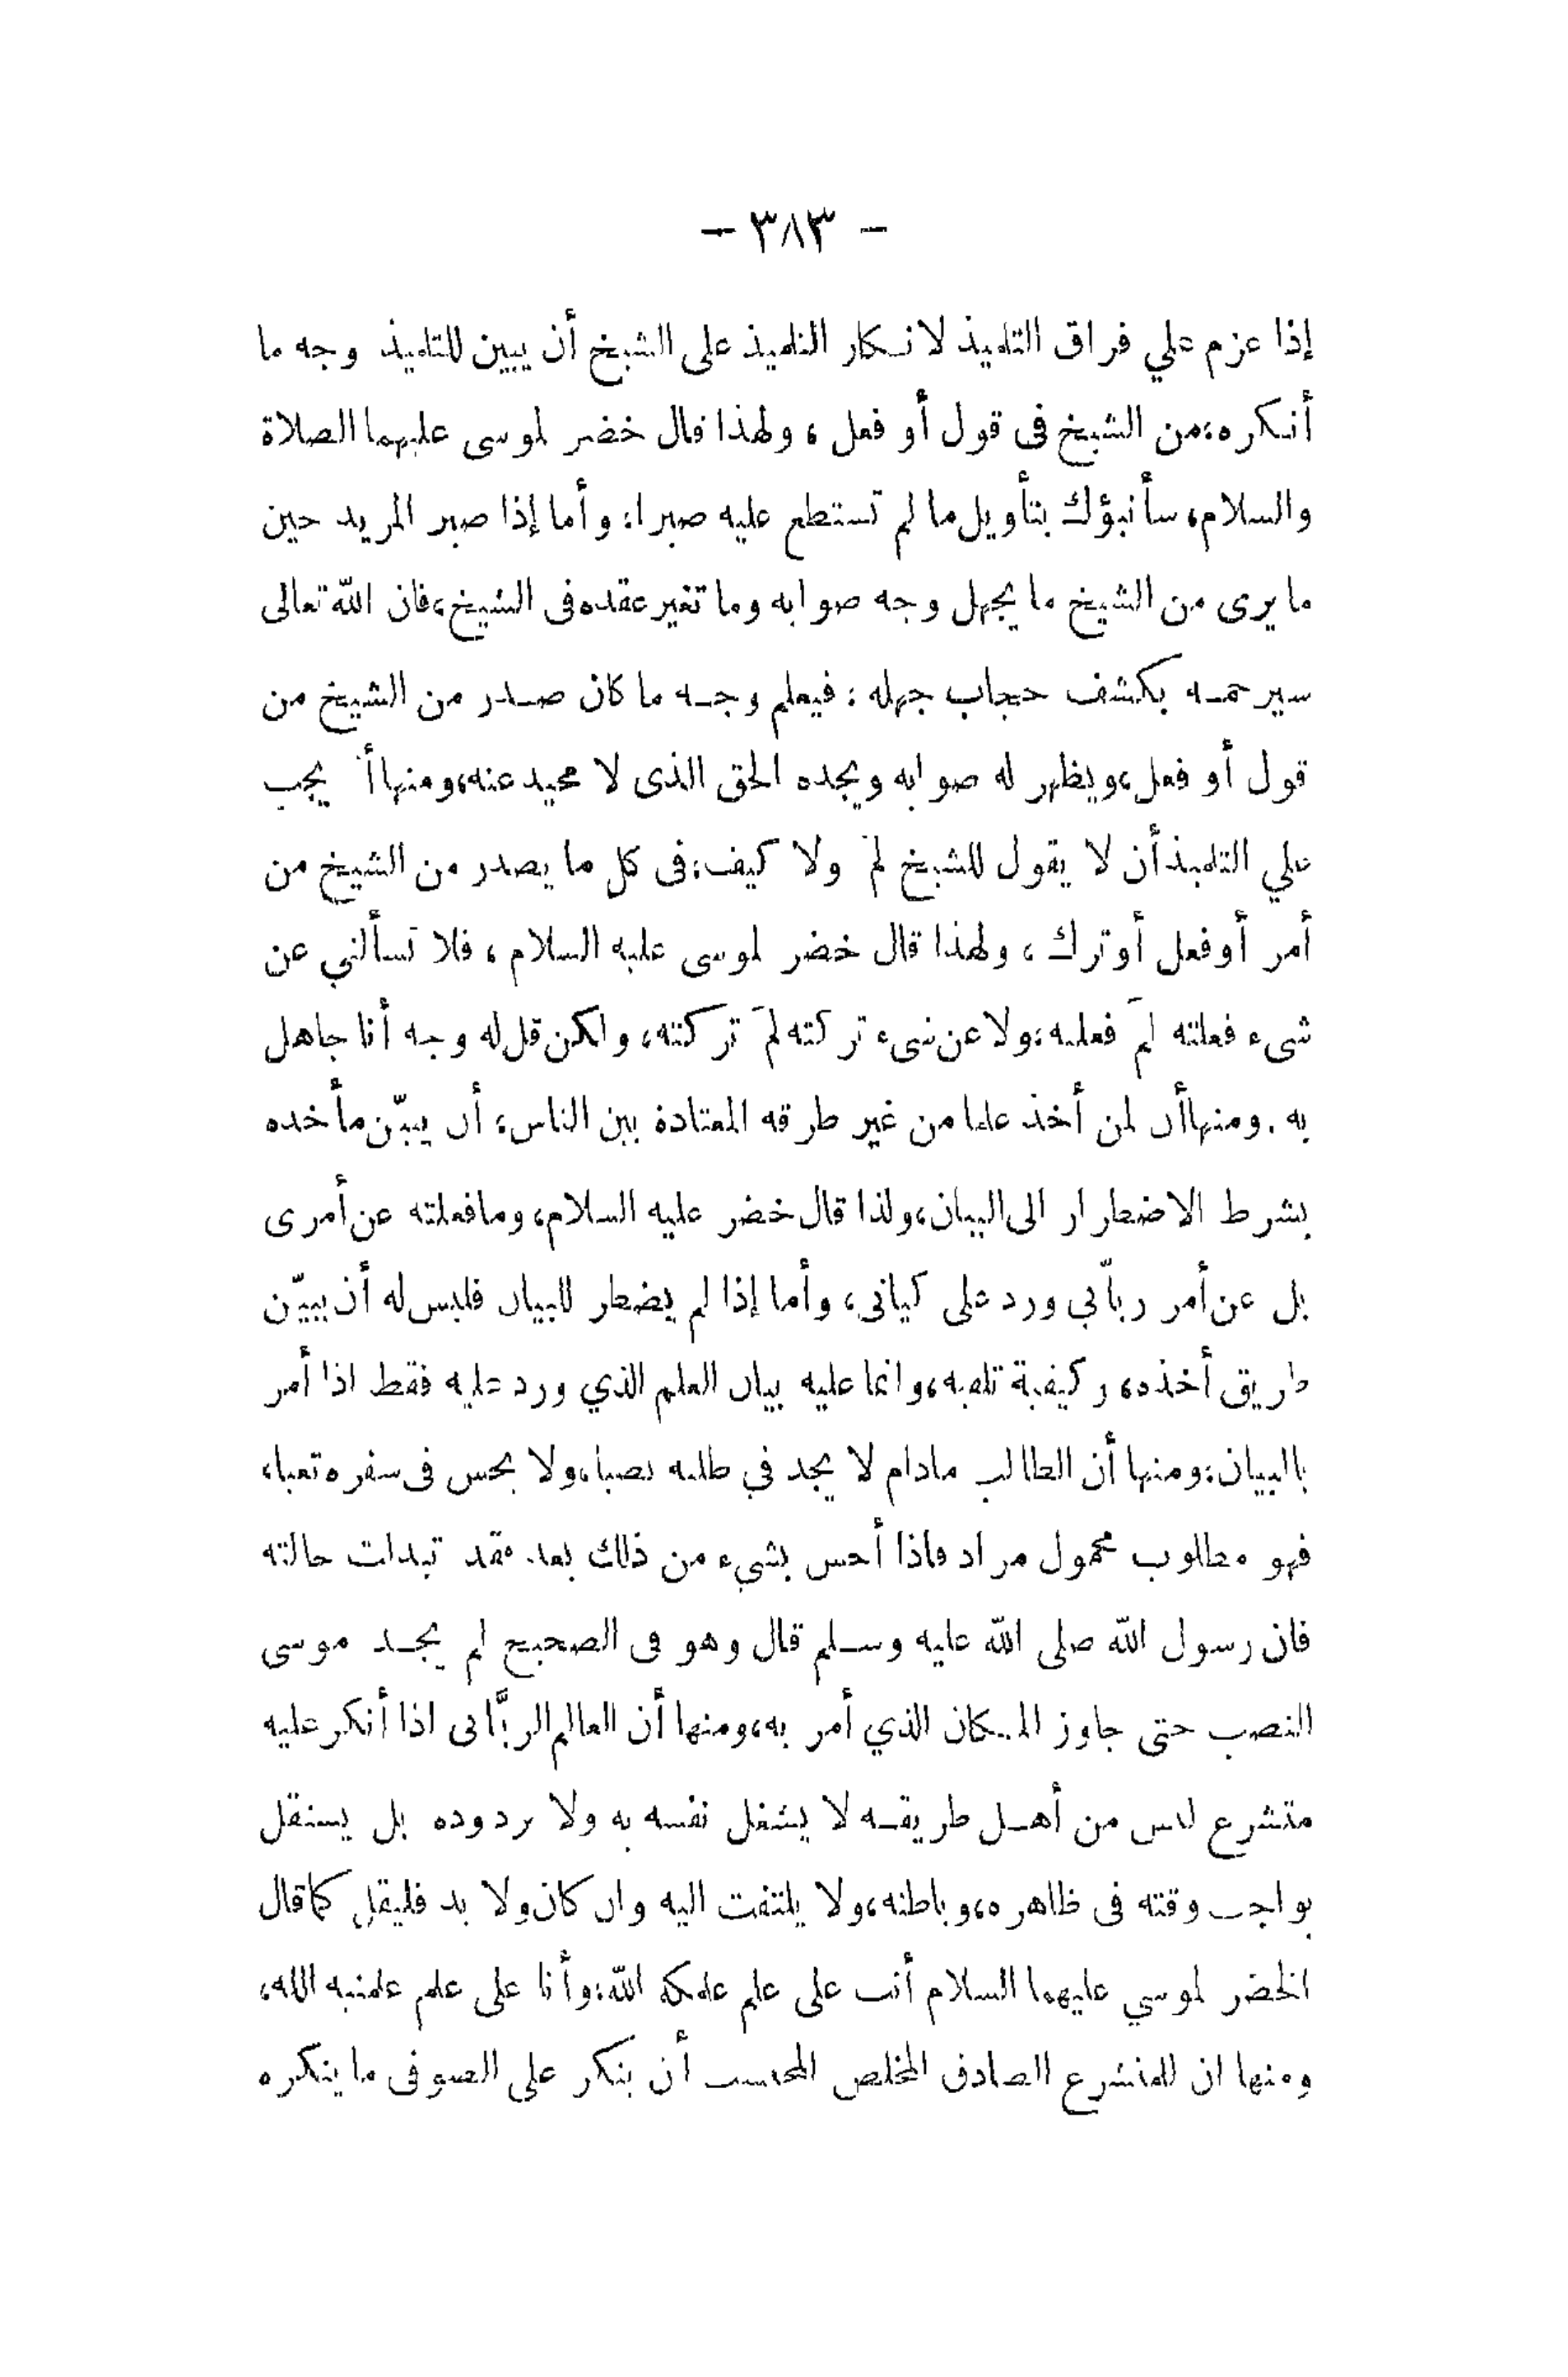 - ٣٨٣ -
إذا عزم علي فراق التلميذ لانكار التلميذ على الشيخ أن يبين للتلميذ وجه ما
أنكره، من الشيخ فى قول أو فعل ، ولهذا قال خضر لموسى عليهما الصلاة
والسلام، سأنبؤك بتأويل ما لم تستطع عليه صبرا، وأما إذا صبر المريد حين
ما يرى من الشيخ ما يجهل وجه صوابه وما تغير عقده فى الشيخ، فان الله تعالى
سيرحمه بكشف حجاب جهله ، فيعلم وجه ما كان صدر من الشيخ من
قول أو فعل، ويظهر له صوابه ويجده الحق الذى لا محيد عنه، ومنها أ يجب
علي التلميذ أن لا يقول للشيخ لمَ ولا كيف، فى كل ما يصدر من الشيخ من
أمر أو فعل أو ترك ، ولهذا قال خضر لموسى عليه السلام ، فلا تسألني عن
شىء فعلته لمَ فعلته، ولا عن شىء تركته لمَ تركته، ولكن قل له وجه أنا جاهل
به . ومنها أن لمن أخذ علما من غير طرقه المعتادة بين الناس، أن يبيّن مأخده
بشرط الاضطرار الى البيان، ولذا قال خضر عليه السلام، وما فعلته عن أمرى
بل عن أمر ربّاني ورد على كيانى، وأما إذا لم يضطر للبيان فليس له أن يبيّن
طريق أخذه، وكيفية تلقيه، وانما عليه بيان العلم الذي ورد عليه فقط اذا أمر
بالبيان، ومنها أن الطالب مادام لا يجد في طلبه نصبا، ولا يحس فى سفره تعبا،
فهو مطلوب محمول مراد فاذا أحس بشيء من ذلك بعد فقد تبدلت حالته
فان رسول الله صلى الله عليه وسلم قال وهو فى الصحيح لم يجد موسى
النصب حتى جاوز المكان الذي أمر به، ومنها أن العالم الربَّانى اذا أنكر عليه
متشرع ليس من أهل طريقه لا يشغل نفسه به ولا بردوده بل يستقل
بواجب وقته فى ظاهره، وباطنه، ولا يلتفت اليه وان كان ولا بد فليقل كما قال
الخضر لموسي عليهما السلام أنت على علم علمكه الله، وأنا على علم علمنيه الله،
ومنها ان للمتشرع الصادق المخلص المحتسب أن ينكر على الصوفى ما ينكره